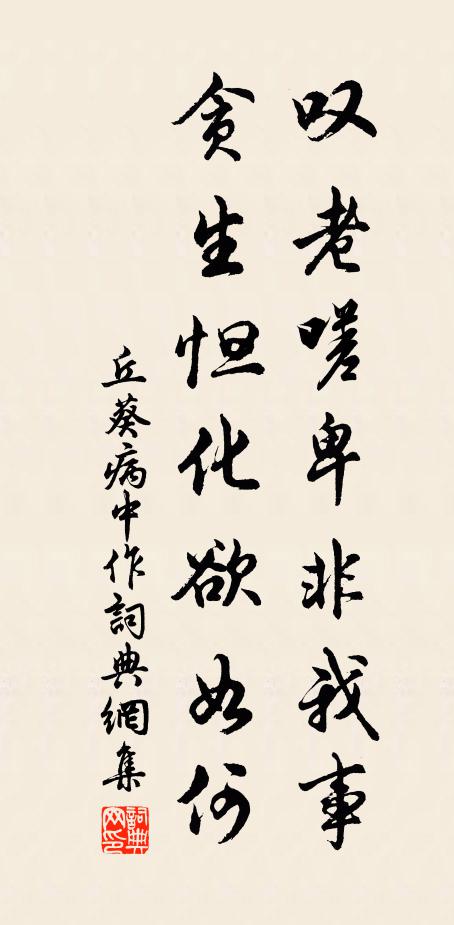 叹老嗟卑非我事
贪生怛化欲如何
丘葵病中作詞典網集
詞典網印